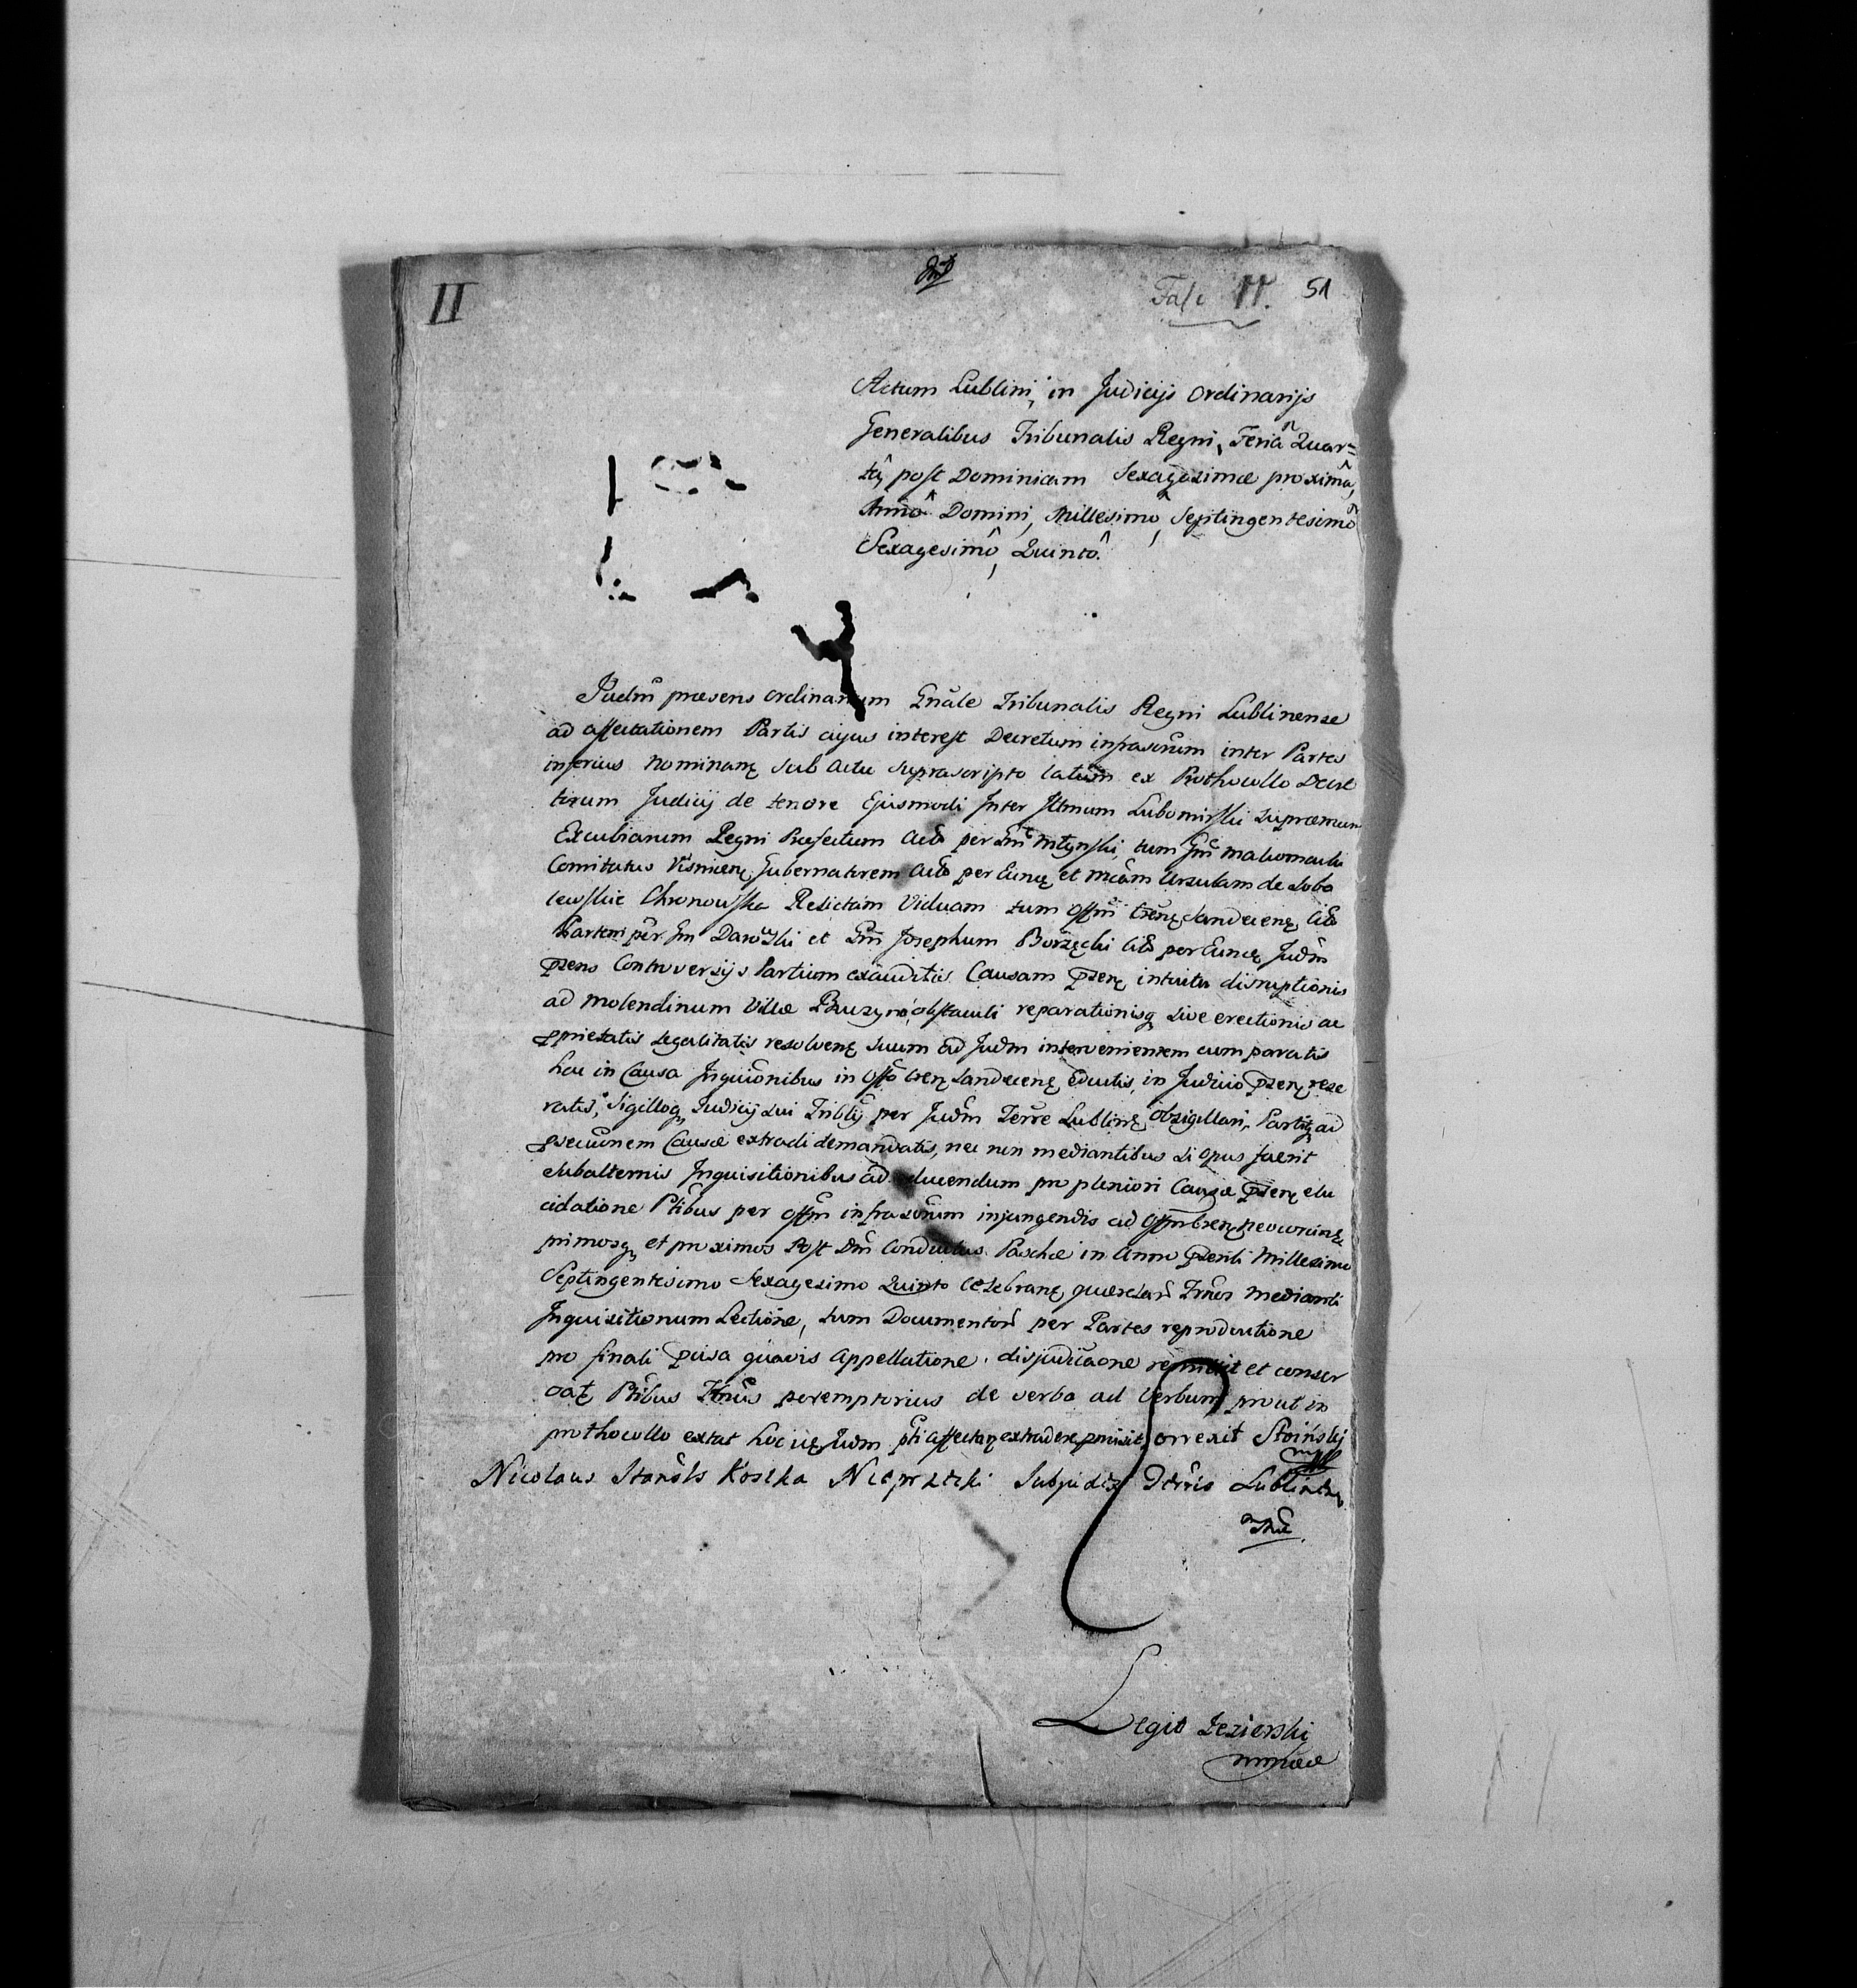 II
Fasc II. 51
Actum Lublini, in Judicijs Ordinarijs
Generalibus Tribunalis Regni, Feriâ Quar=
tâ, post Dominicam Sexagesimæ proximâ,
Annô Domini, Millesimô, Septingentesimô
Sexagesimô, Quintô.
Judm præsens ordinarium Gnãle Tribunalis Regni Lublinense
ad affectationem Partis cujus interest Decretum infrascrum inter Partes
inferius nominanę sub Actu suprascripto latum ex Prothocollo Decre
torum Judicij de tenore Ejusmodi Inter Illmum Lubomirski Supremum
Excubiarum Regni Præfectum Actô per Gm̃ Młynski, tum Gm̃
Comitatus Visnicnę Gubernatorem Actô per Eunę et Mcam Ursulam de Sobo
lewskie Chronowska Relictam Viduam tum Offm̃ Csrnę Sandecenę Citô
Partem per Gm̃ et Gm̃ Josephum Borzęcki Citô per Eunę Judm
pzens Controversijs Partium exauditis Causam pzenę intuitu disruptionis
ad molendinum Villæ obstaculi reparationisq sive erectionis ac
pprietatis legalitatis resolvenę suum ad Judm intervenientem cum paratis
hac in Causa Inquionibus in Offô Csrenę Sandecenę eductis, in Judicio pzenę rese
ratis, Sigilloq Judicij sui Triblij per Judm Terræ Lublinę obsigillari, Partiq ad
psecuõnem Causæ extradi demandatis, nec non mediantibus si opus fuerit
subalternis Inquisitionibus ad educendum pro pleniori Causæ pzenę elu
cidatione Ptibus per Offm̃ infrascrum injungendis ad Offm̃
primosq et proximos Post Dm̃ Conductus Paschæ in Anno pzenti Millesimo
Septingentesimo Sexagesimo Quinto Celebranę, querelarũ Trnos medianti
Inquisitionum Lectione, tum Documentorũ per Partes reproductione
pro finali pcisa quavis Appellatione, disjudicaone remisit et conser
vat Ptibus Trnus peremptorius de verbo ad verbum prout in
prothocollo extat hocce Judm pti affectanę extradere pmisit Correxit Stoinskij
mpp
Nicolaus Stanõls Kostka Nieprzecki Subjudex Terris Lublinenę
mpp
Legit Jezierski
mmpria